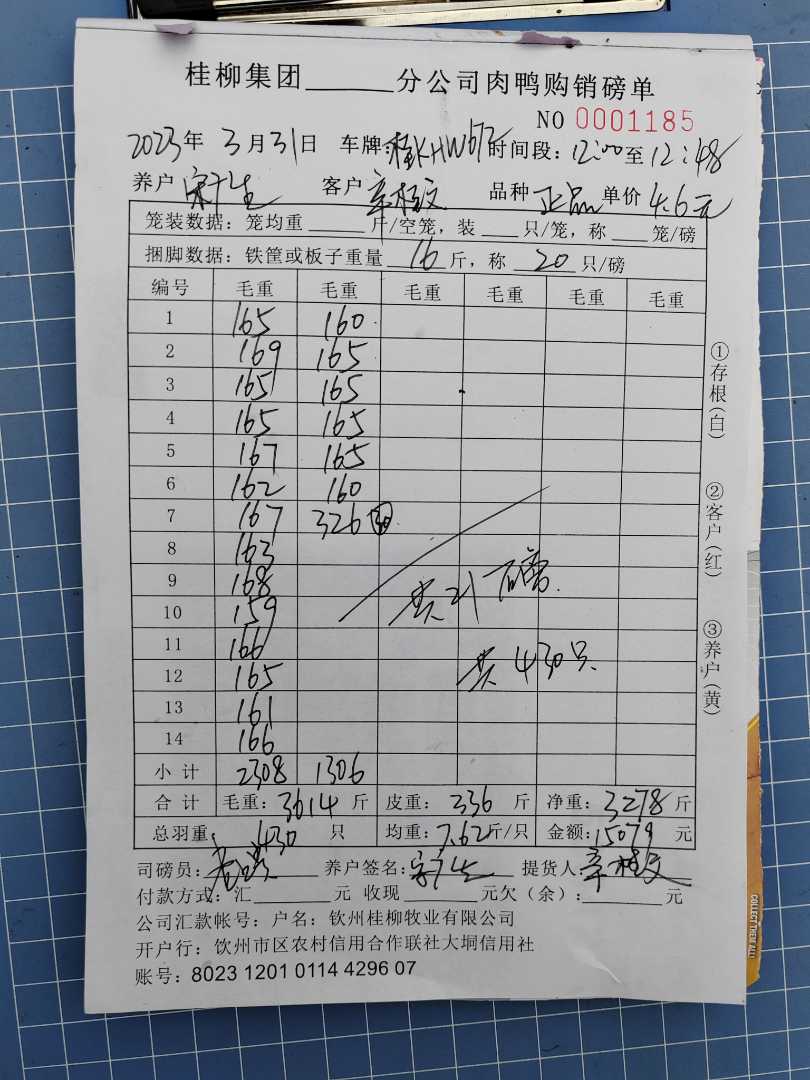 桂柳集团______分公司肉鸭购销磅单
NO 0001185
2023年 3月31日 车牌:桂KHW672 时间段:12:00至12:48
养户 客户 辛桂文 品种 正品 单价 4.6元
笼装数据:笼均重____斤/空笼,装____只/笼,称____笼/磅
捆脚数据:铁筐或板子重量 16 斤,称 20 只/磅
编号 毛重 毛重 毛重 毛重 毛重 毛重
1 165 160
2 169 165
3 165 165
4 165 165
5 167 165
6 162 160
7 167 326 30
8 163
9 168
10 159
11 166
12 165
13 161
14 166
共21磅.
共430只.
小计 2308 1306
合计 毛重:3614 斤 皮重:336 斤 净重:3278斤
总羽重: 430 只 均重:7.62斤/只 金额:15079 元
司磅员: 养户签名: 提货人:辛桂文
付款方式:汇______元 收现______元欠(余):______元
公司汇款帐号:户名:钦州桂柳牧业有限公司
开户行:钦州市区农村信用合作联社大垌信用社
账号:8023 1201 0114 4296 07
①存根(白)
②客户(红)
③养户(黄)
COLLECT THEM ALL!